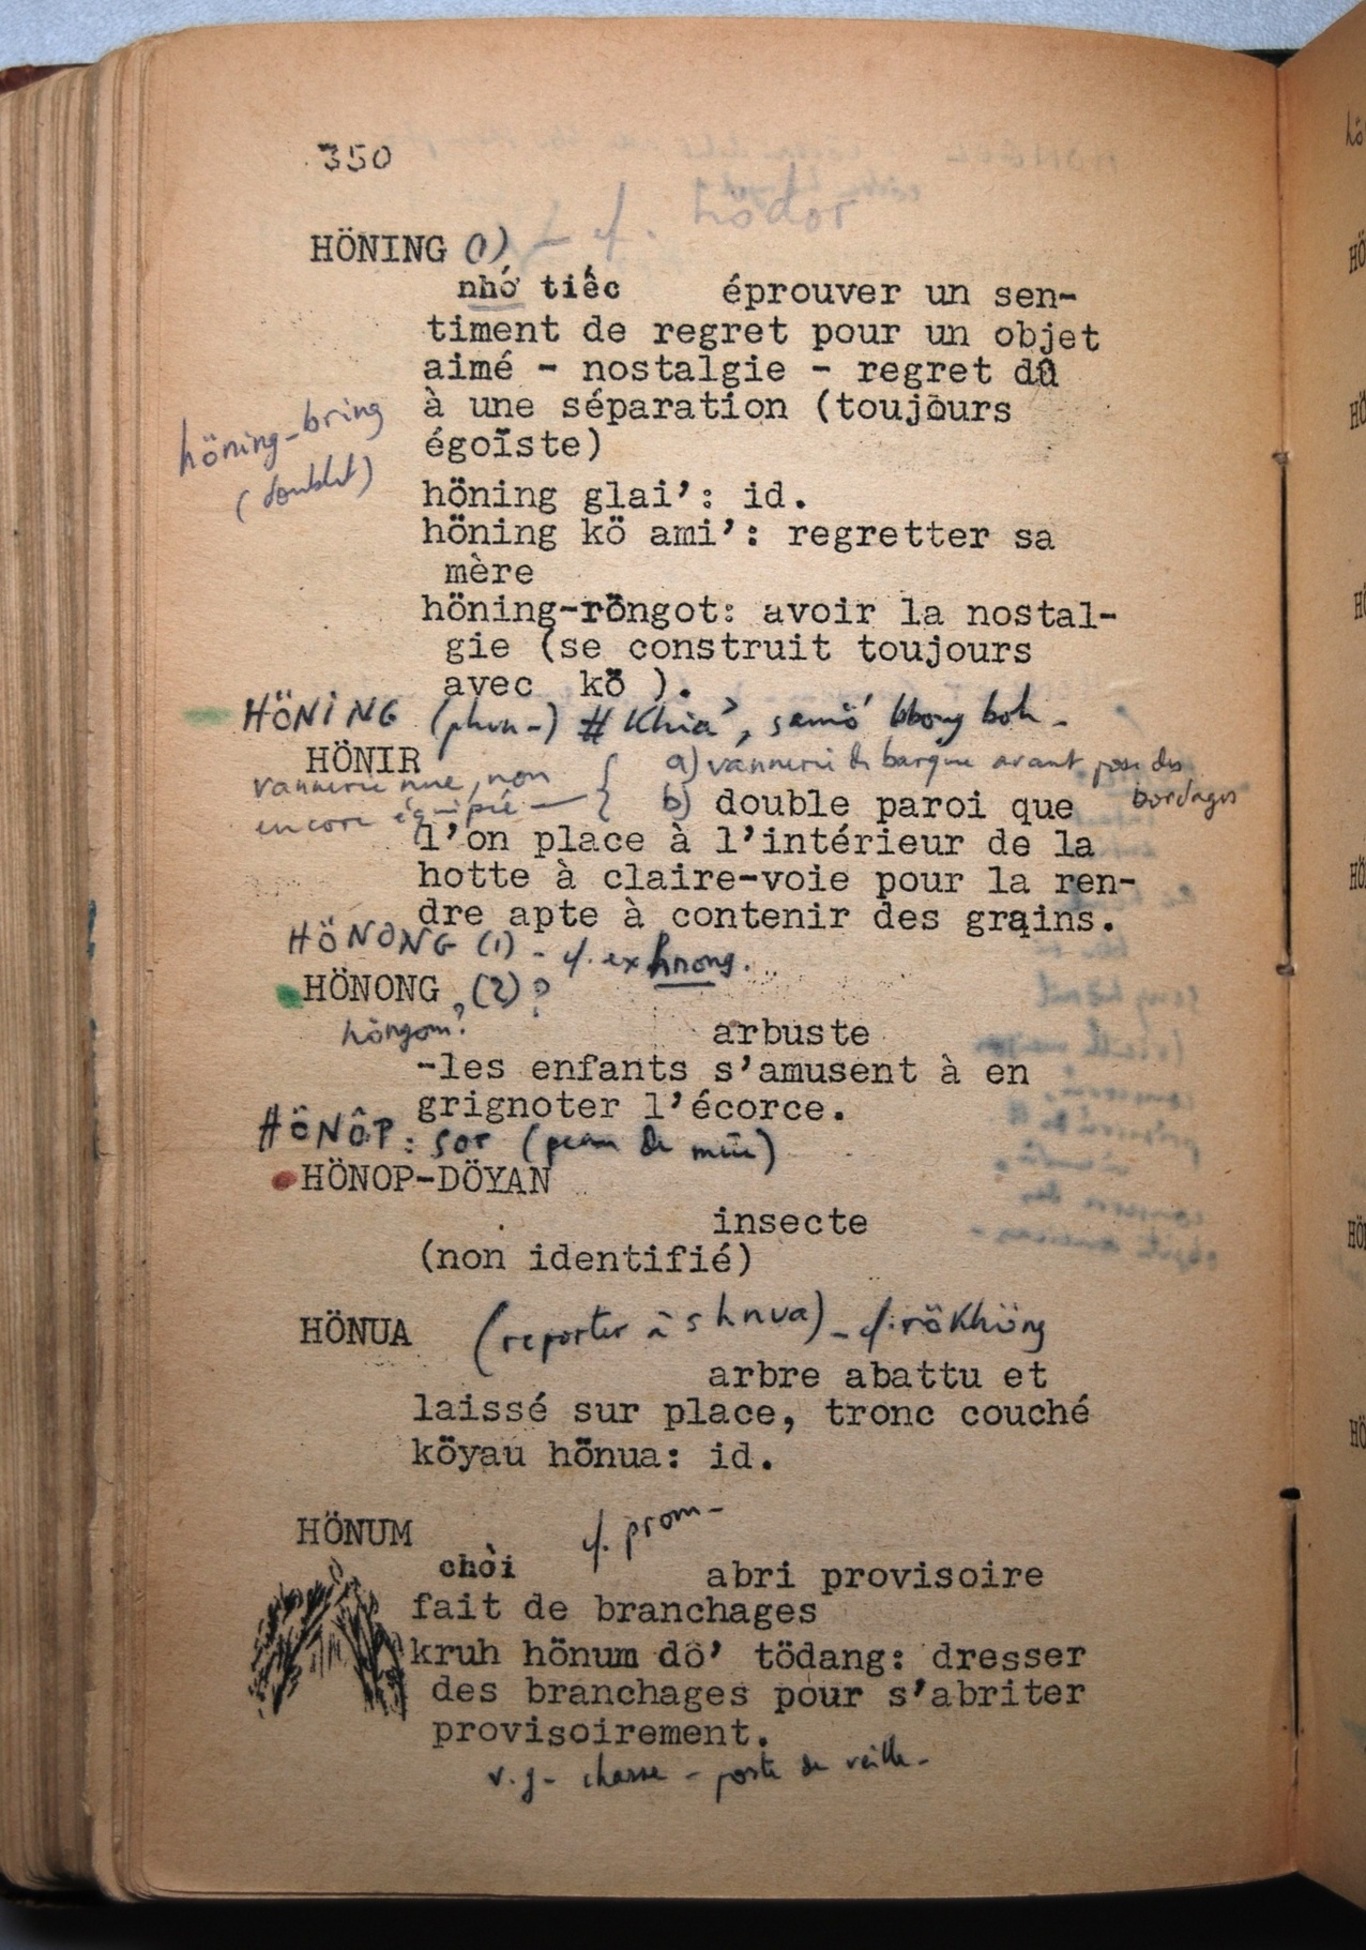 350
cf. hödor
HÖNING 1)
nhớ tiếc éprouver un sen-
timent de regret pour un objet
aimé - nostalgie - regret dû
à une séparation (toujours
égoïste)
höning-bring
(doublet)
höning glai': id.
höning kö ami': regretter sa
mère
höning-röngot: avoir la nostal-
gie (se construit toujours
avec kö ).
HÖNING (phun-) # Khia', samö' bbong boh -
HÖNIR
vannerie nue, non
encore équipée — {
a) vannerie de barque avant pose des
bordages
b) double paroi que
l'on place à l'intérieur de la
hotte à claire-voie pour la ren-
dre apte à contenir des grains.
HÖNONG (1) - cf. ex hnong.
HÖNONG (2) ?
höngom?
arbuste
-les enfants s'amusent à en
grignoter l'écorce.
HÖNÔP: sor (peau de)
HÖNOP-DÖYAN
insecte
(non identifié)
HÖNUA (reporter à s hnua) - cf. röKhöng
arbre abattu et
laissé sur place, tronc couché
köyau hönua: id.
HÖNUM cf. prom-
chòi abri provisoire
fait de branchages
kruh hönum dô' tödang: dresser
des branchages pour s'abriter
provisoirement.
v.g- chasse - poste de veille-